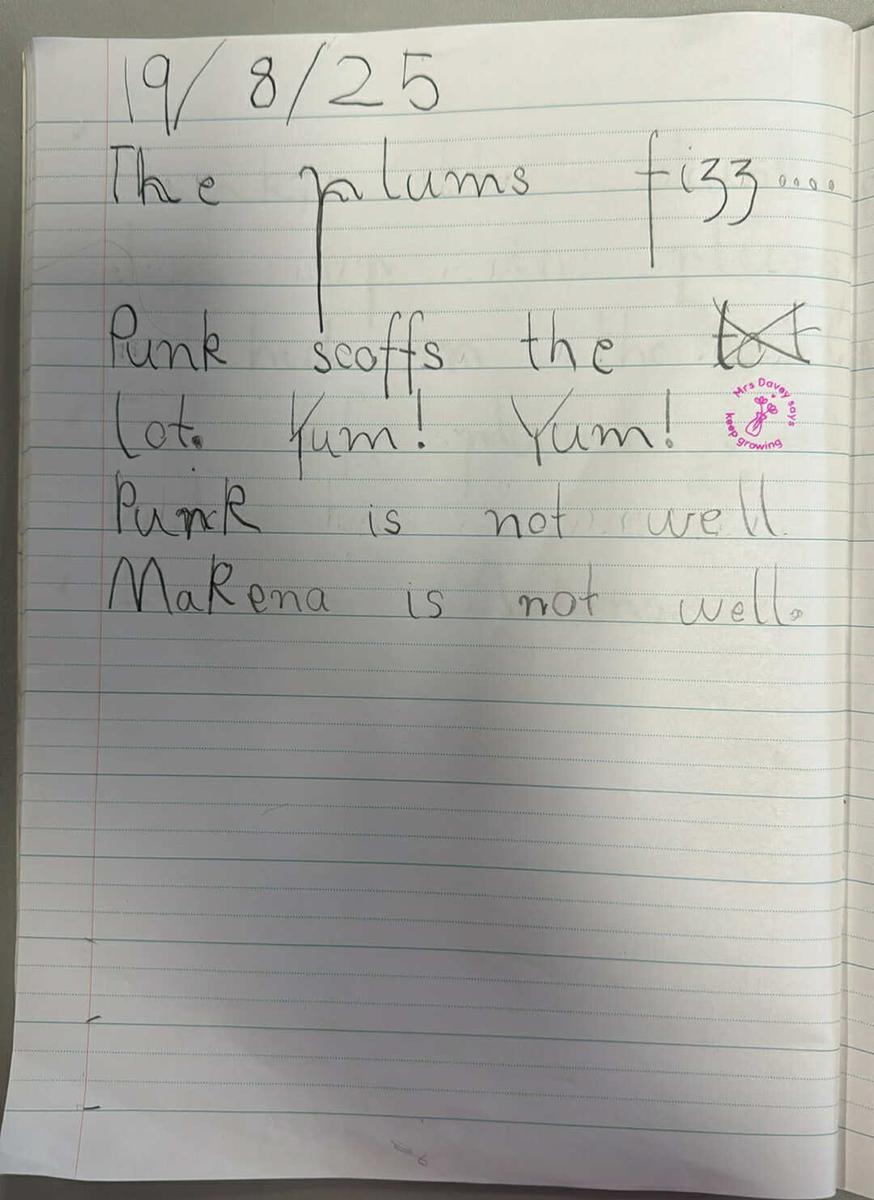 19/8/25
The plums fizz....
Punk scoffs the tot
lot. Yum! Yum!
Mrs Davey says
keep growing
Punk is not well
Makena is not well.